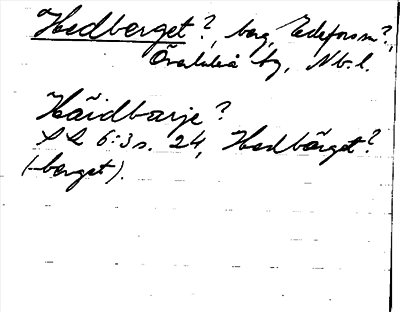 Hedberget?, berg, Edefors sn?,
Överluleå by, Nb. l.
Häidbarje?
SL 6:3 s. 24, Hedbärget?
(-berget).